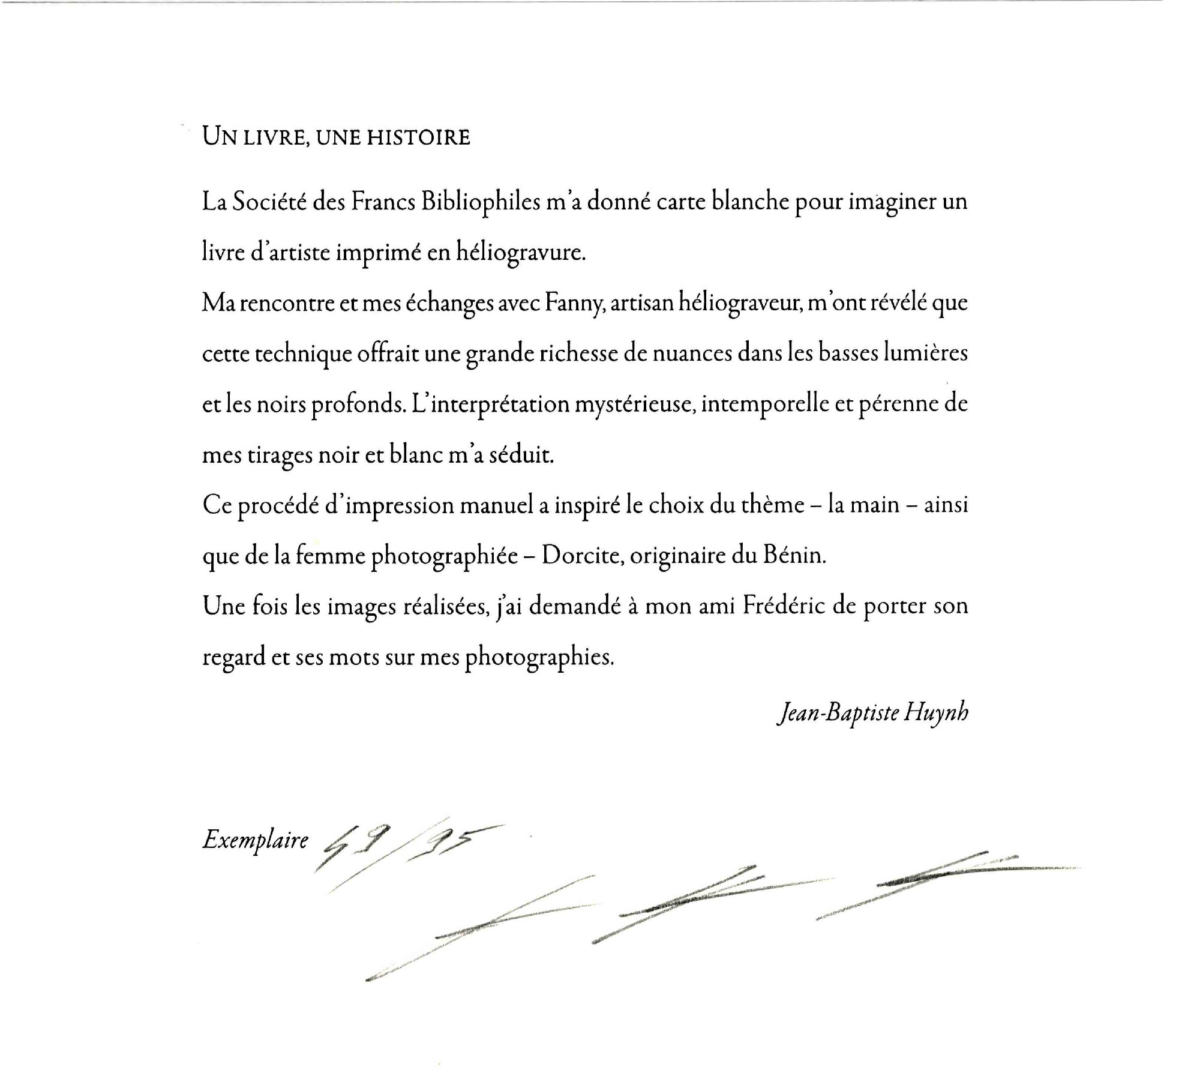 UN LIVRE, UNE HISTOIRE
La Société des Francs Bibliophiles m'a donné carte blanche pour imaginer un
livre d'artiste imprimé en héliogravure.
Ma rencontre et mes échanges avec Fanny, artisan héliograveur, m'ont révélé que
cette technique offrait une grande richesse de nuances dans les basses lumières
et les noirs profonds. L'interprétation mystérieuse, intemporelle et pérenne de
mes tirages noir et blanc m'a séduit.
Ce procédé d'impression manuel a inspiré le choix du thème – la main – ainsi
que de la femme photographiée – Dorcite, originaire du Bénin.
Une fois les images réalisées, j'ai demandé à mon ami Frédéric de porter son
regard et ses mots sur mes photographies.
Jean-Baptiste Huynh
Exemplaire 49/95